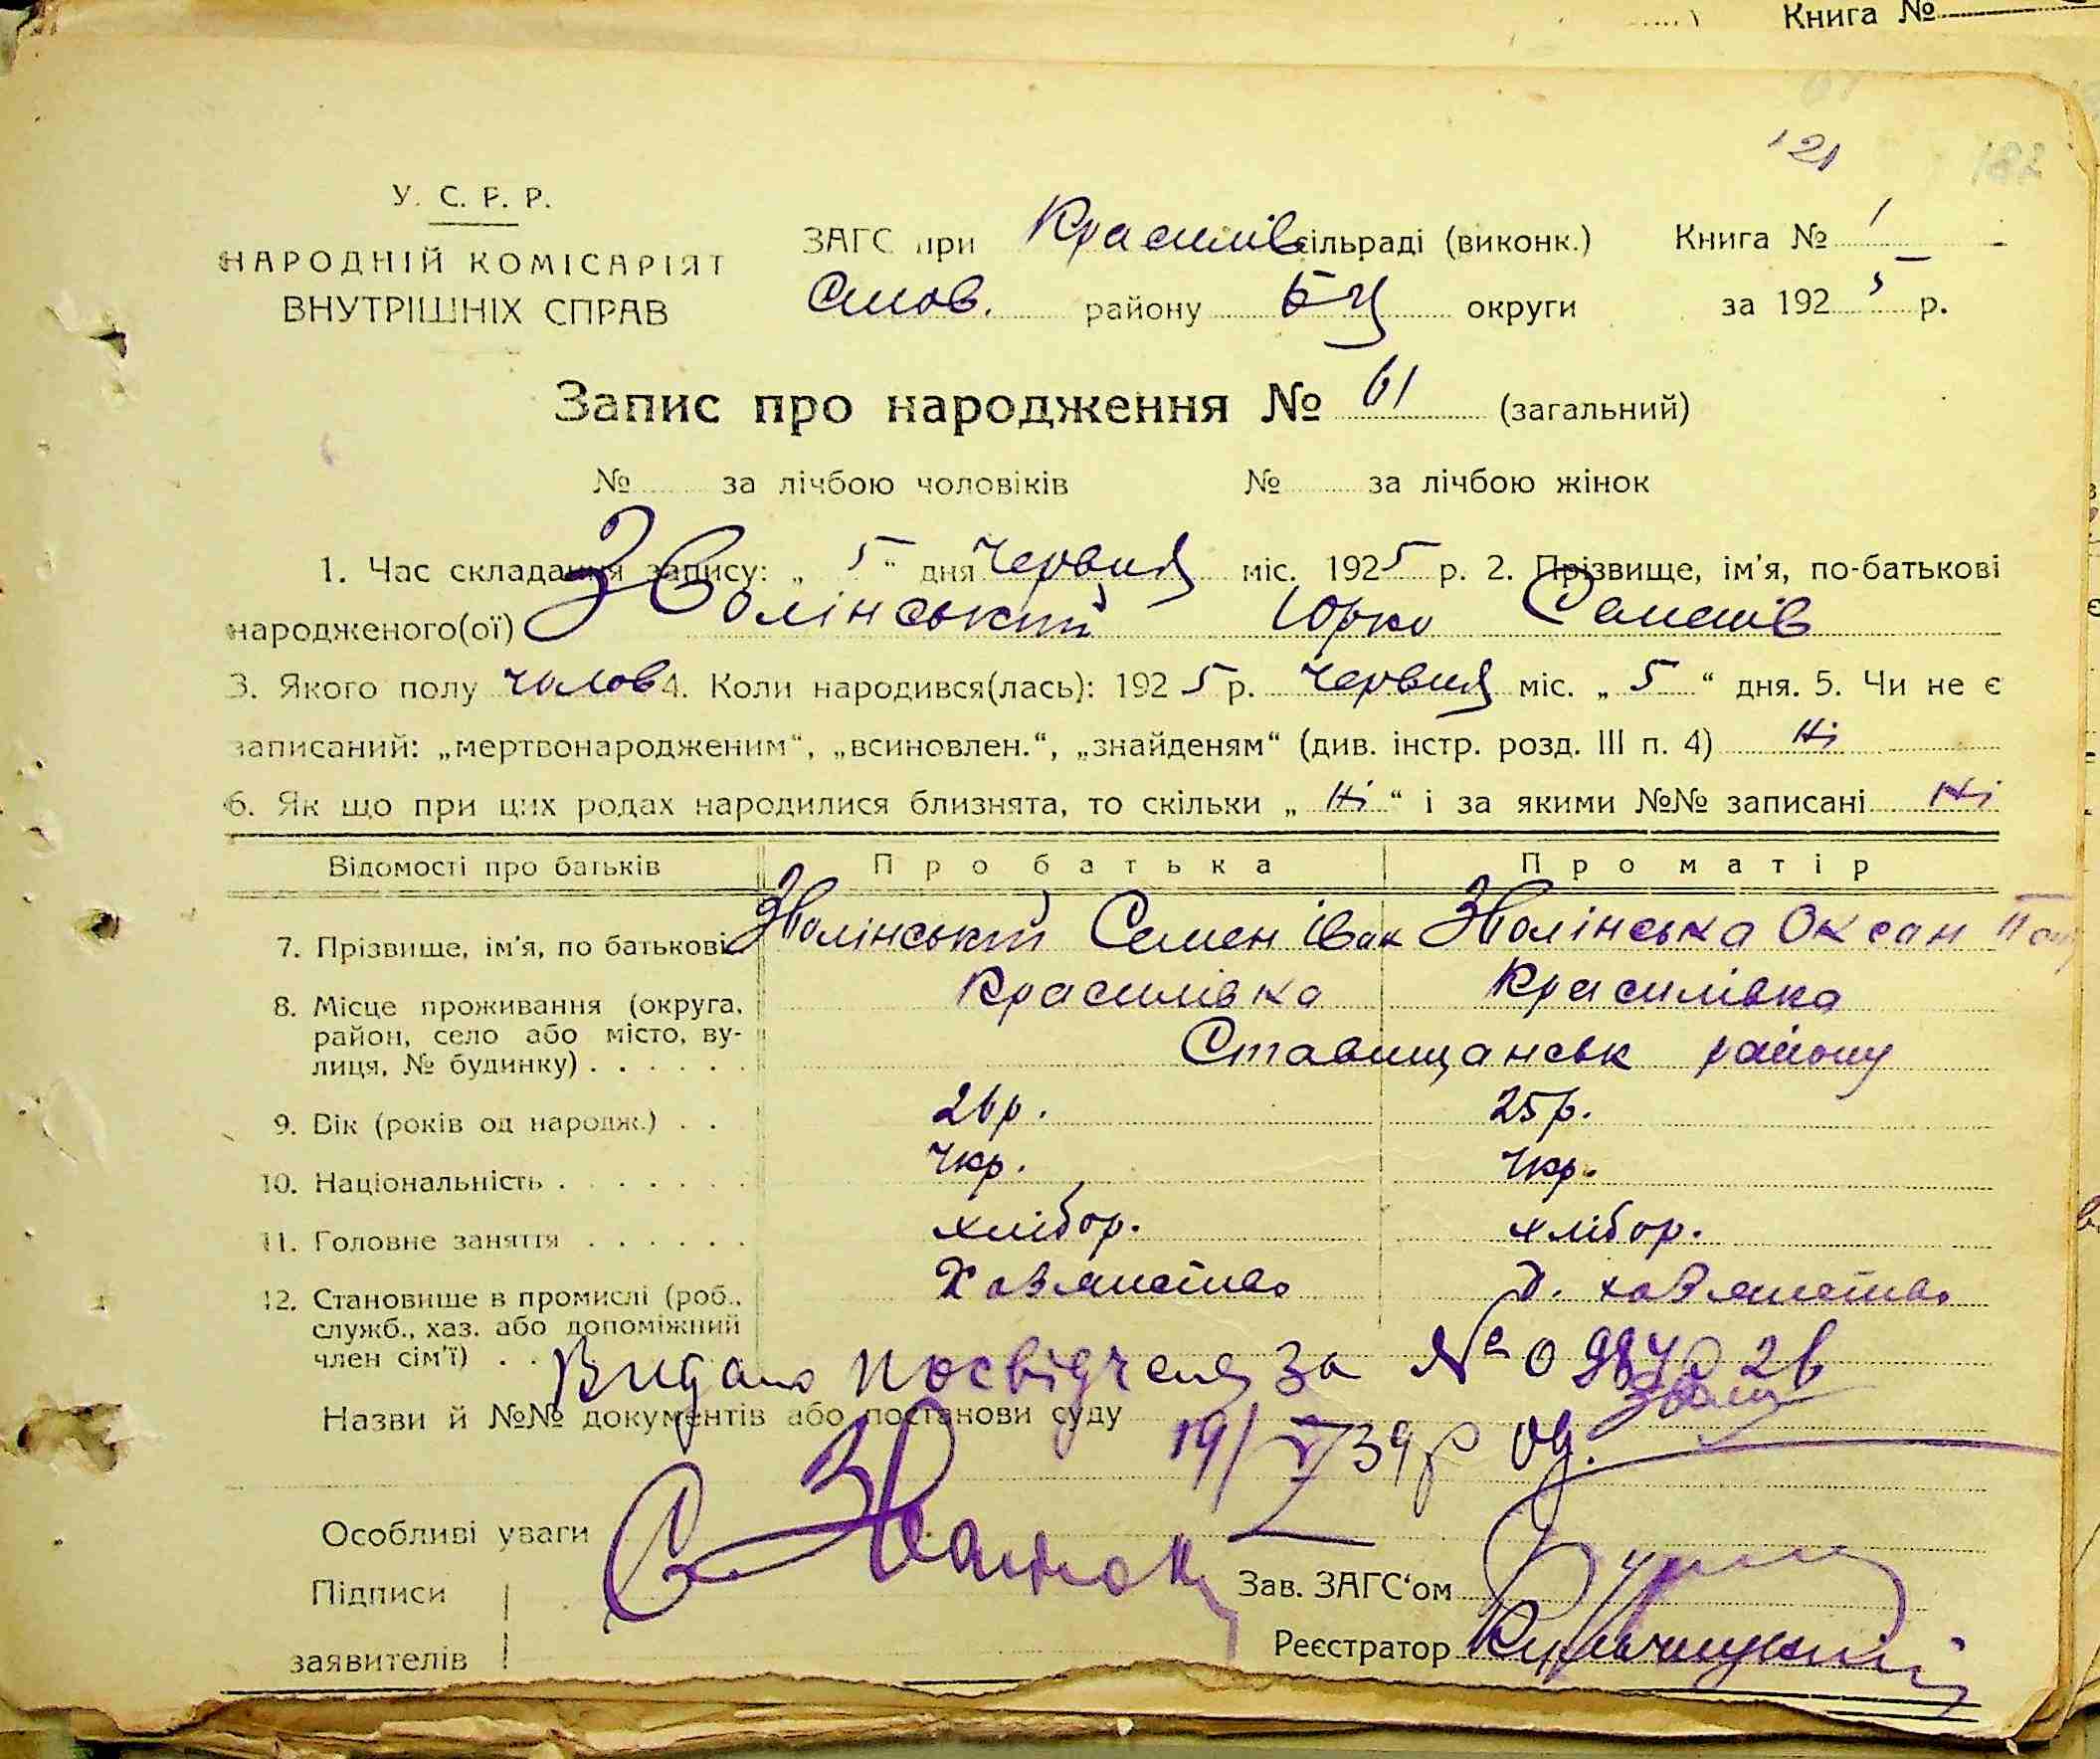 Книга №
121
182
У. С. Р. Р.
НАРОДНІЙ КОМІСАРІЯТ
ВНУТРІШНІХ СПРАВ
ЗАГС при Красилів сільраді (виконк.)
Книга № 1
району БЦ округи
за 192 5 р.
Запис про народження № 61 (загальний)
№ за лічбою чоловіків № за лічбою жінок
1. Час складання запису: „ 5 “ дня Червня міс. 1925 р. 2. Прізвище, ім'я, по-батькові
народженого(ої) Зволінський Юрко Семенів
3. Якого полу чолов 4. Коли народився(лась): 192 5 р. Червня міс. „ 5 “ дня. 5. Чи не є
записаний: „мертвонародженим“, „всиновлен.“, „знайденям“ (див. інстр. розд. III п. 4) Ні
6. Як що при цих родах народилися близнята, то скільки „ Ні “ і за якими №№ записані Ні
Відомості про батьків Про батька Про матір
7. Прізвище, ім'я, по батькові Зволінський Семен Іван Зволінська Оксан
8. Місце проживання (округа, район, село або місто, вулиця, № будинку) Красилівка Красилівка
Ставищанськ району
9. Вік (років од народж.) 26р. 25р.
10. Національність Укр. Укр.
11. Головне заняття хлібор. хлібор.
12. Становище в промислі (роб., служб., хаз. або допоміжний член сім'ї)
Видано посвідченя за №
Назви й №№ документів або постанови суду 19/V 39р
Особливі уваги
Підписи
заявителів
Зав. ЗАГС'ом
Реєстратор